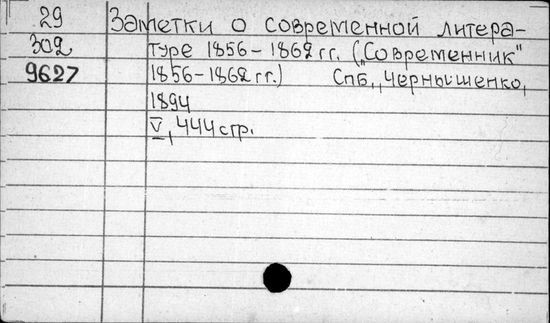 29 Заметки о современной литера-
302 туре 1856-1862 гг. („Современник"
9627 1856-1862 гг.) Спб., Чернышенко,
1894
V, 444 стр.